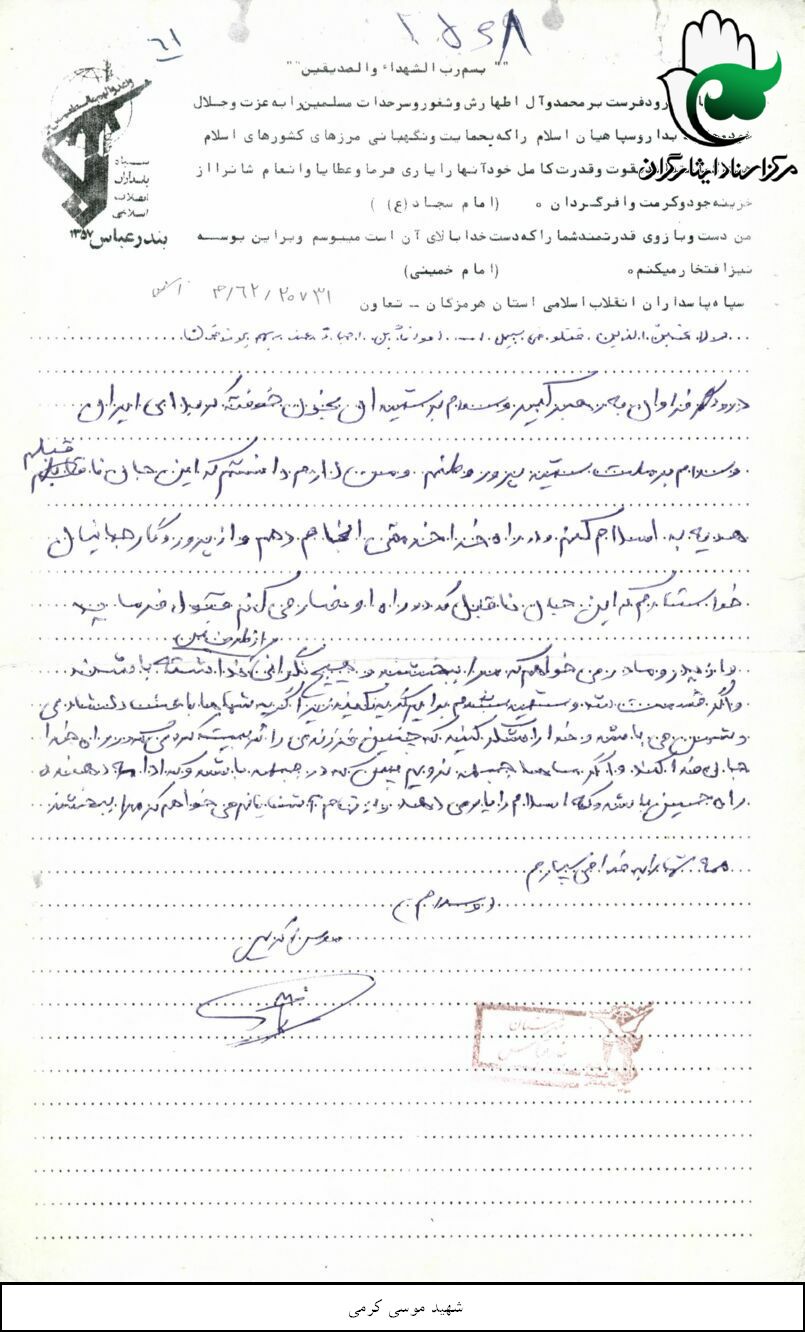 ۶۱
"" بسم رب الشهداء والصدیقین ""
رودفرست بر محمد و آل اطهارش وثغور وسرحدات مسلمین را به عزت وجلال
بدار وسپاهیان اسلام را که بحمایت ونگهبانی مرزهای کشورهای اسلام
قوت وقدرت کامل خود آنها را یاری فرما وعطایا وانعام شان را از
خزینه جود وکرمت وافر گردان ۰ (امام سجاد (ع) )
من دست وبازوی قدرتمند شما را که دست خدا بالای آن است میبوسم وبر این بوسه
نیز افتخار میکنم ۰ (امام خمینی)
سپاه پاسداران انقلاب اسلامی استان هرمزگان – تعاون ۳/۶۲/۲۰۷۳۱
مرکز اسناد ایثارگران
سپاه
پاسداران
انقلاب
اسلامی
بندرعباس ۱۳۵۷
درود فراوان به رهبر کبیر و سلام بر شهیدان بخون خفته کربلای ایران
و سلام بر ملت شهید پرور وطنم و من لازم دانستم که این جان ناقابلم
هدیه به اسلام کنم و در راه خدا خدمتی انجام دهم و از پروردگار جهانیان
خواستارم که این جان ناقابل که در راه او نصار می کنم قبول فرماید
از طرف من
و از پدر و مادر می خواهم که مرا ببخشند و هیچ نگرانی نداشته باشند
و اگر قسمت شد و شهید شدم برایم گریه نکنید زیرا گریه شماها باعث دلشاد می
دشمن می باشد و خدا را شکر کنید که چنین فرزندی را تربیت کردی که در راه خدا
جان فدا کند و اگر ماها جبهه نرویم پس کی که در جبهه باشد و که ادامه دهنده
راه حسین باشد و که اسلام را یاری دهد و از تمام آشنایانم می خواهم که مرا ببخشند
همه شما را به خدا می سپارم
والسلام
موسی کرمی
شهید موسی کرمی